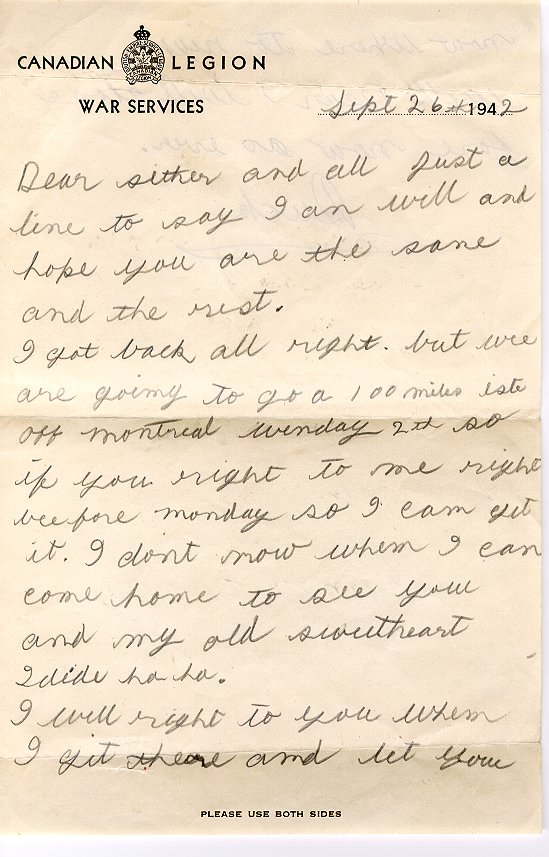 CANADIAN LEGION
WAR SERVICES
Sept 26th 1942
Dear sither and all Just a
line to say I an will and
hope you are the sane
and the rest.
I got back all right. but wee
are goimy to go a 100 miles iste
off montreal wenday 2th so
if you right to me right
beefore monday so I cam git
it. I dont mow whem I can
come home to see you
and my old sweetheart
ha ha.
I will right to you whem
I git there and let youe
PLEASE USE BOTH SIDES